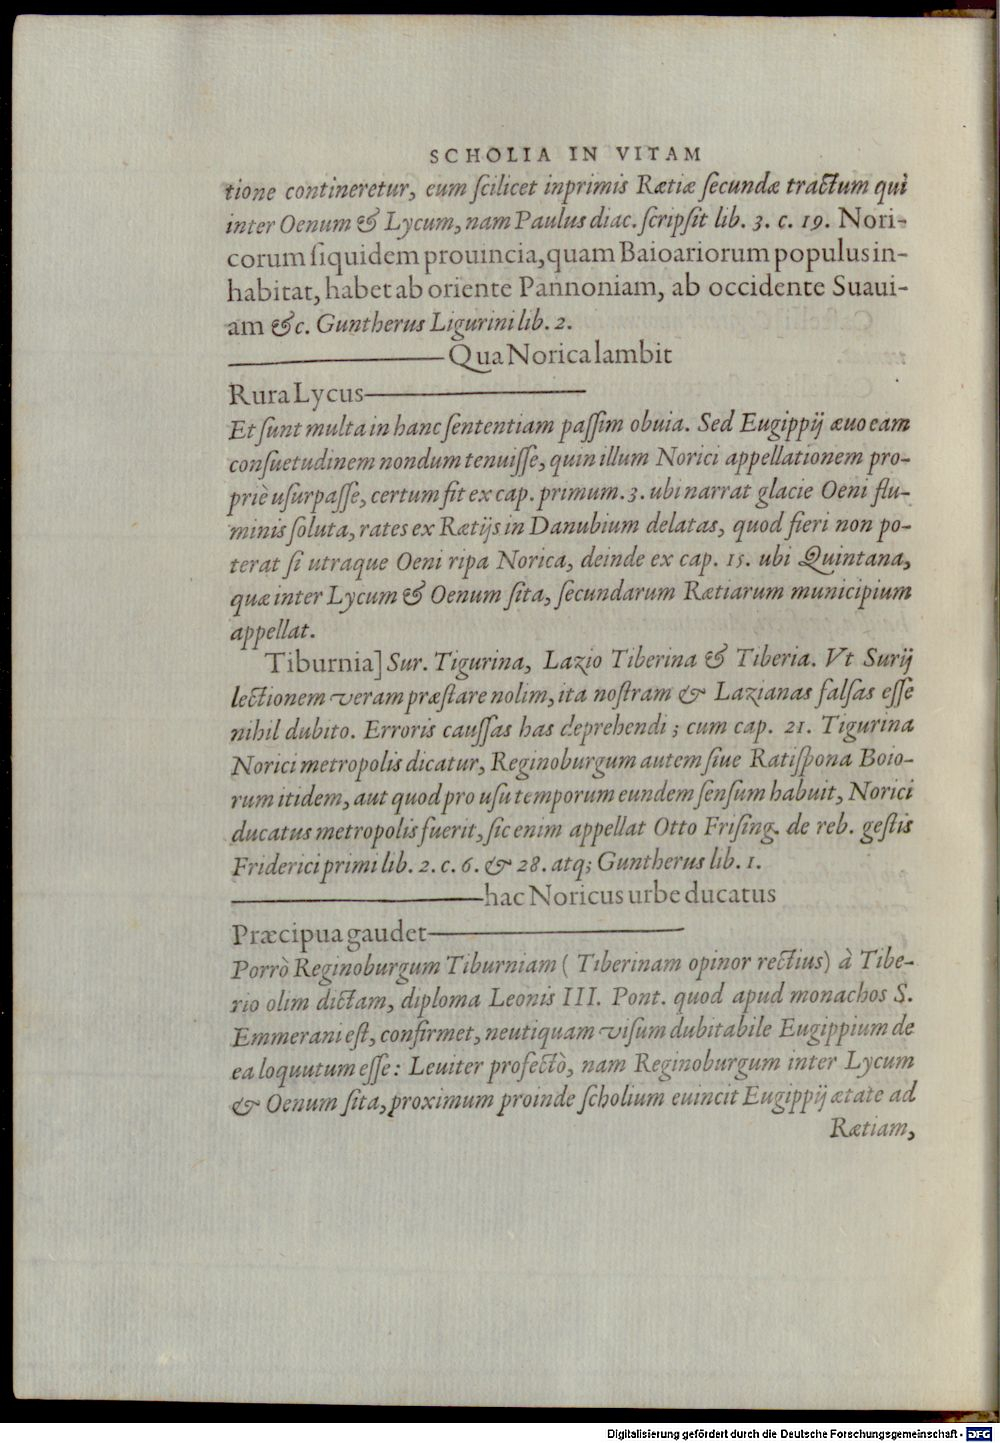 SCHOLIA IN VITAM
tione contineretur, eum ſcilicet inprimis Rætiæ ſecundæ tractum qui
inter Oenum & Lycum, nam Paulus diac. ſcripſit lib. 3. c. 19. Nori-
corum ſiquidem prouincia, quam Baioariorum populus in-
habitat, habet ab oriente Pannoniam, ab occidente Suaui-
am &c. Guntherus Ligurini lib. 2.
Qua Norica lambit
Rura Lycus
Et ſunt multa in hanc ſententiam paſſim obuia. Sed Eugippij æuo eam
conſuetudinem nondum tenuiſſe, quin illum Norici appellationem pro-
priè uſurpaſſe, certum fit ex cap. primum. 3. ubi narrat glacie Oeni flu-
minis ſoluta, rates ex Rætijs in Danubium delatas, quod fieri non po-
terat ſi utraque Oeni ripa Norica, deinde ex cap. 15. ubi Quintana,
quæ inter Lycum & Oenum ſita, ſecundarum Rætiarum municipium
appellat.
Tiburnia] Sur. Tigurina, Lazio Tiberina & Tiberia. Vt Surij
lectionem veram præſtare nolim, ita noſtram & Lazianas falſas eſſe
nihil dubito. Erroris cauſſas has deprehendi; cum cap. 21. Tigurina
Norici metropolis dicatur, Reginoburgum autem ſiue Ratiſpona Boio-
rum itidem, aut quod pro uſu temporum eundem ſenſum habuit, Norici
ducatus metropolis fuerit, ſic enim appellat Otto Friſing. de reb. geſtis
Friderici primi lib. 2. c. 6. & 28. atq; Guntherus lib. 1.
hac Noricus urbe ducatus
Præcipua gaudet
Porrò Reginoburgum Tiburniam ( Tiberinam opinor rectius) à Tibe-
rio olim dictam, diploma Leonis III. Pont. quod apud monachos S.
Emmerani eſt, confirmet, neutiquam viſum dubitabile Eugippium de
ea loquutum eſſe: Leuiter profectò, nam Reginoburgum inter Lycum
& Oenum ſita, proximum proinde ſcholium euincit Eugippij ætate ad
Rætiam,
Digitalisierung gefördert durch die Deutsche Forschungsgemeinschaft - DFG